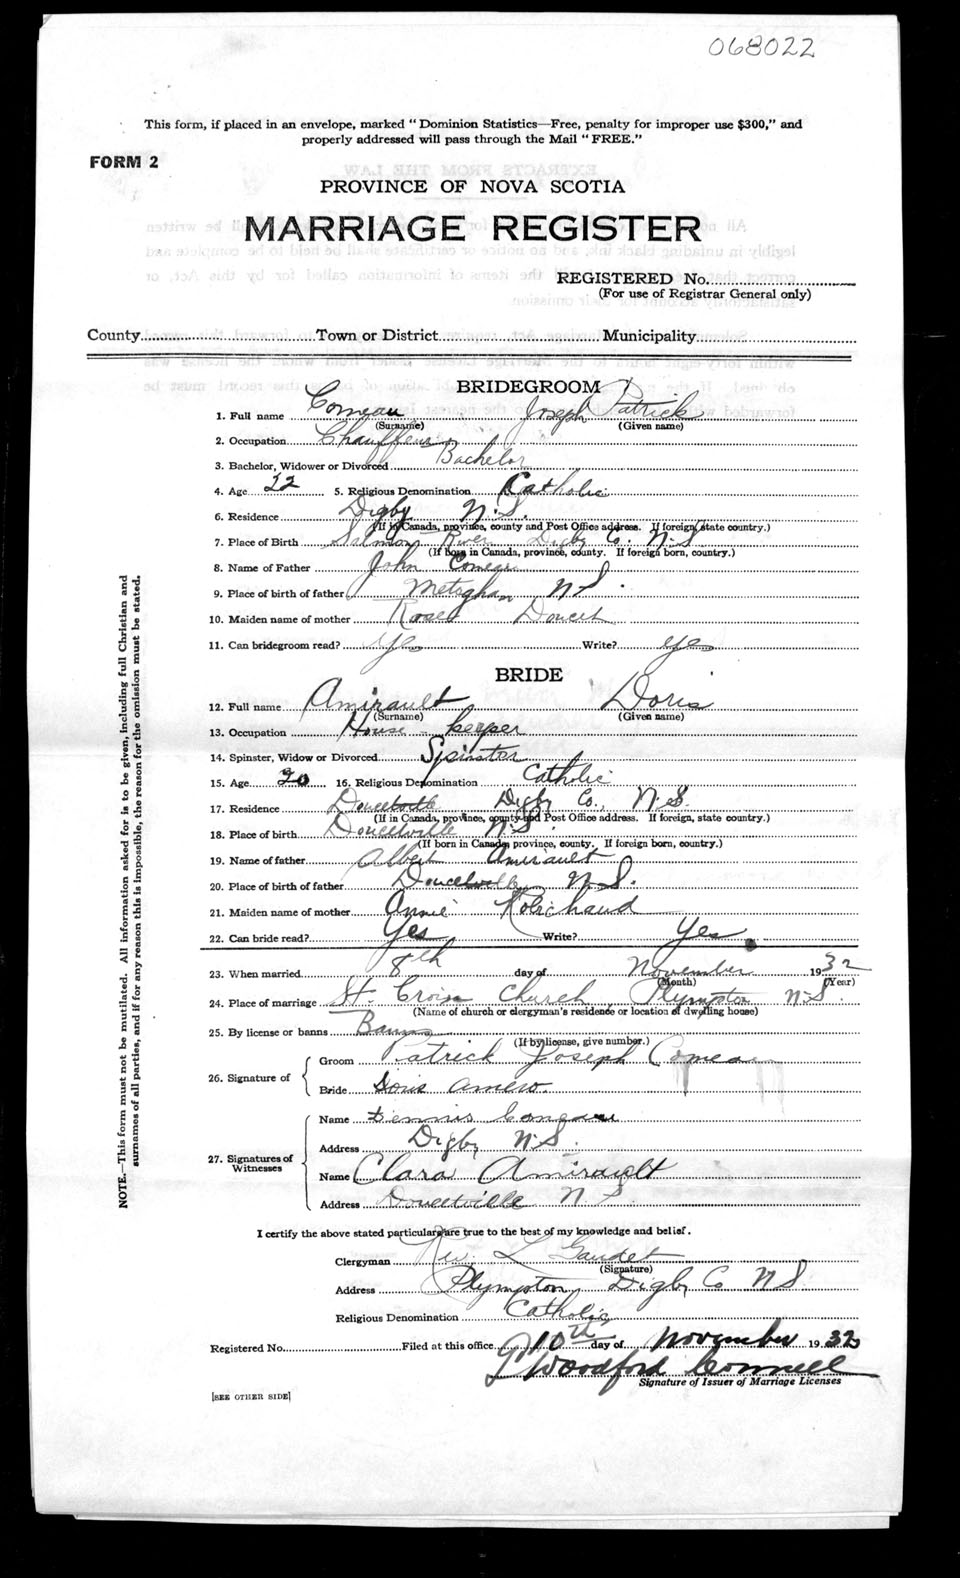 068022
This form, if placed in an envelope, marked "Dominion Statistics—Free, penalty for improper use $300," and
properly addressed will pass through the Mail "FREE."
FORM 2
PROVINCE OF NOVA SCOTIA
MARRIAGE REGISTER
REGISTERED No.
(For use of Registrar General only)
County Town or District Municipality
BRIDEGROOM
1. Full name Comeau Joseph Patrick
(Surname) (Given name)
2. Occupation Chauffeur
3. Bachelor, Widower or Divorced Bachelor
4. Age 22 5. Religious Denomination Catholic
6. Residence Digby N.S.
(If in Canada, province, county and Post Office address. If foreign, state country.)
7. Place of Birth Salmon River Digby Co. N.S
(If born in Canada, province, county. If foreign born, country.)
8. Name of Father John Comeau
9. Place of birth of father Meteghan N S.
10. Maiden name of mother Rose Doucet
11. Can bridegroom read? Yes Write? yes
BRIDE
12. Full name Amirault Doris
(Surname) (Given name)
13. Occupation House keeper
14. Spinster, Widow or Divorced Spinster
15. Age 20 16. Religious Denomination Catholic
17. Residence Doucetville Digby Co., N.S.
(If in Canada, province, county and Post Office address. If foreign, state country.)
18. Place of birth Doucetville N.S.
(If born in Canada, province, county. If foreign born, country.)
19. Name of father Albert Amirault
20. Place of birth of father Doucetville N.S.
21. Maiden name of mother Annie Robichaud
22. Can bride read? Yes Write? Yes
23. When married 8th day of November 1932
(Month) (Year)
24. Place of marriage St. Croix Church, Plympton N.S.
(Name of church or clergyman's residence or location of dwelling house)
25. By license or banns Banns
(If by license, give number.)
26. Signature of
Groom Patrick Joseph Comeau
Bride Doris Amero.
27. Signatures of Witnesses
Name Dennis Comeau
Address Digby N.S.
Name Clara Amirault
Address Doucetville N S.
I certify the above stated particulars are true to the best of my knowledge and belief.
Clergyman Rev. L Gaudet
(Signature)
Address Plympton Digby Co N.S.
Religious Denomination Catholic
Registered No. Filed at this office 10th day of November 1932
Woodford Connell
Signature of Issuer of Marriage Licenses
[SEE OTHER SIDE]
NOTE.—This form must not be mutilated. All information asked for is to be given, including full Christian and
surnames of all parties, and if for any reason this is impossible, the reason for the omission must be stated.